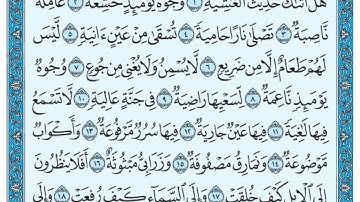 هَلْ أَتَىٰكَ حَدِيثُ ٱلْغَٰشِيَةِ ١ وُجُوهٌ يَوْمَئِذٍ خَٰشِعَةٌ ٢ عَامِلَةٌ
نَّاصِبَةٌ ٣ تَصْلَىٰ نَارًا حَامِيَةً ٤ تُسْقَىٰ مِنْ عَيْنٍ ءَانِيَةٍ ٥ لَّيْسَ
لَهُمْ طَعَامٌ إِلَّا مِن ضَرِيعٍ ٦ لَّا يُسْمِنُ وَلَا يُغْنِي مِن جُوعٍ ٧ وُجُوهٌ
يَوْمَئِذٍ نَّاعِمَةٌ ٨ لِّسَعْيِهَا رَاضِيَةٌ ٩ فِي جَنَّةٍ عَالِيَةٍ ١٠ لَّا تَسْمَعُ
فِيهَا لَٰغِيَةً ١١ فِيهَا عَيْنٌ جَارِيَةٌ ١٢ فِيهَا سُرُرٌ مَّرْفُوعَةٌ ١٣ وَأَكْوَابٌ
مَّوْضُوعَةٌ ١٤ وَنَمَارِقُ مَصْفُوفَةٌ ١٥ وَزَرَابِيُّ مَبْثُوثَةٌ ١٦ أَفَلَا يَنظُرُونَ
إِلَى ٱلْإِبِلِ كَيْفَ خُلِقَتْ ١٧ وَإِلَى ٱلسَّمَآءِ كَيْفَ رُفِعَتْ ١٨ وَإِلَى